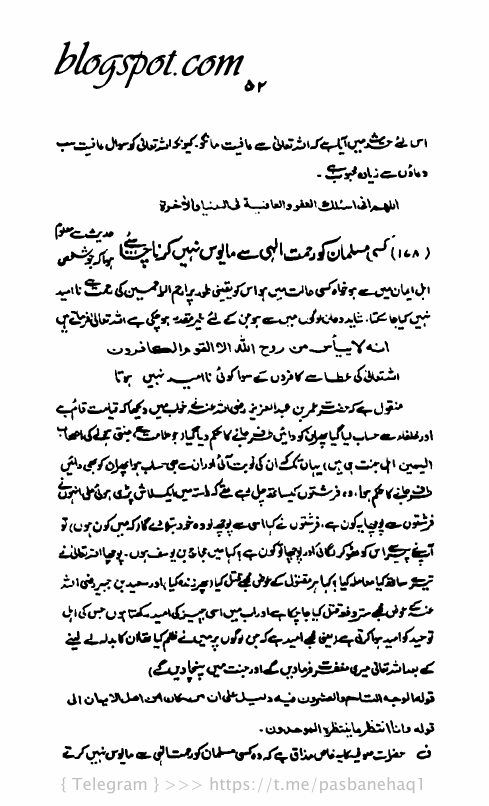 blogspot.com
۵۲
اس لئے حدیث میں آیا ہے کہ اللہ تعالیٰ سے عافیت مانگو۔ کیونکہ اللہ تعالیٰ کو سوال عافیت سب
دعاؤں سے زیادہ محبوب ہے۔
اللهم انی اسئلک العفو والعافیة فی الدنیا والآخرة
(۱۷۸) کسی مسلمان کو رحمت الٰہی سے مایوس نہیں کرنا چاہئے حدیث سے معلوم ہوا کہ جو شخص
اہل ایمان میں سے ہو خواہ کسی حالت میں ہو اس کو یقینی طور پر ارحم الراحمین کی رحمت سے نا امید
نہیں کیا جا سکتا۔ شاید وہ ان لوگوں میں سے ہو جن کے لئے خیر مقدر ہو چکی ہے اللہ تعالیٰ فرماتے ہیں
انه لا ییأس من روح الله الا القوم الکافرون
اللہ تعالیٰ کی عطا سے کافروں کے سوا کوئی ناامید نہیں ہوتا
منقول ہے کہ حضرت عمر بن عبدالعزیز رضی اللہ عنہ نے خواب میں دیکھا کہ قیامت قائم ہے
اور خلفاء سے حساب لیا گیا پھر ان کو دائیں طرف جانے کا حکم دیا گیا
الیمین اہل جنت ہی ہیں) یہاں تک کہ ان کی نوبت آئی اور ان سے بھی حساب ہوا پھر ان کو بھی دائیں
طرف جانے کا حکم ہوا، وہ فرشتوں کیساتھ چل رہے تھے کہ راستہ میں ایک لاش پڑی ہوئی ملی انہوں نے
فرشتوں سے پوچھا یہ کون ہے، فرشتوں نے کہا اسی سے پوچھ لو وہ خود بتائے گا (کہ میں کون ہوں) تو
آپ نے پیر سے اس کو ٹھوکر لگائی اور پوچھا تو کون ہے؟ کہا میں حجاج بن یوسف ہوں۔ پوچھا اللہ تعالیٰ نے
تیرے ساتھ کیا معاملہ کیا؟ کہا ہر مقتول کے عوض مجھے قتل کیا (پھر زندہ کیا) اور سعید بن جبیر رضی اللہ
عنہ کے عوض مجھے ستر دفعہ قتل کیا جا چکا ہے اور اب میں اسی چیز کی امید رکھتا ہوں جس کی اہل
توحید کو امید ہوا کرتی ہے (یعنی مجھے امید ہے کہ جن لوگوں پر میں نے ظلم کیا تھا ان کا بدلہ لے لینے
کے بعد اللہ تعالیٰ میری مغفرت فرما دیں گے اور جنت میں پہنچا دیں گے)
قوله الوجه التاسع والعشرون فیه دلیل علی ان من کان من اهل الایمان الی
قوله وانا انتظر ما ینتظره الموحدون۔
ف حضرات صوفیہ کا یہ خاص مذاق ہے کہ وہ کسی مسلمان کو رحمت الٰہی سے مایوس نہیں کرتے
{ Telegram } >>> https://t.me/pasbanehaq1